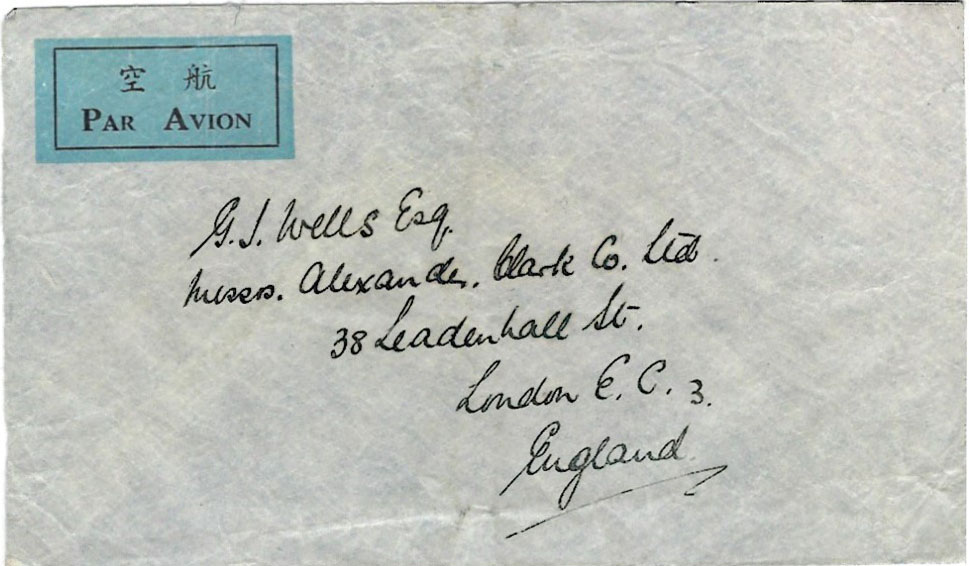 空 航
PAR AVION
G. J. Wells Esq.
Messrs. Alexander, Clark Co. Ltd.
38 Leadenhall St.
London E. C. 3.
England